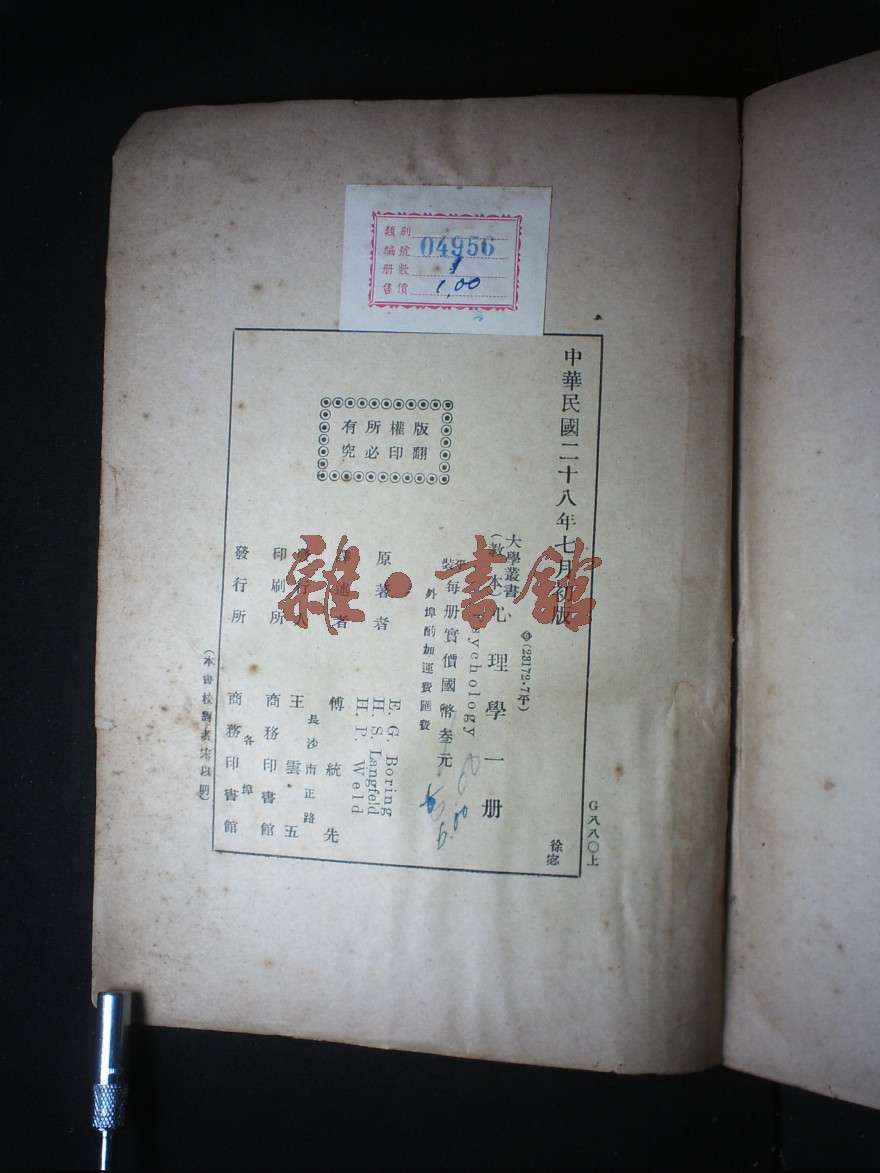 類別
編號 04956
册數 1
售價 1.00
中華民國二十八年七月初版
⑤(23172·7平)
大學叢書
(教本)心理學一册
Psychology
平裝每册實價國幣叁元
外埠酌加運費匯費
6.00
原著者 E. G. Boring
H. S. Langfeld
H. P. Weld
譯述者 傅統先
發行人 王雲五
長沙南正路
印刷所 商務印書館
發行所 商務印書館
各埠
版權所有
翻印必究
G八八〇上
徐宓
雜·書館